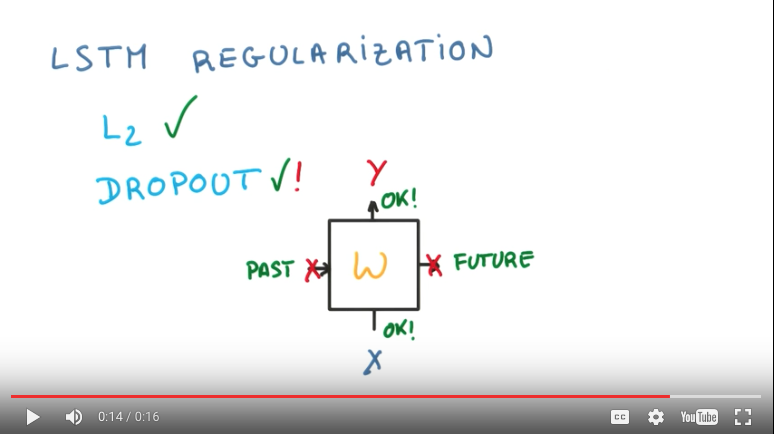 LSTM REGULARIZATION
L2 ✓
DROPOUT ✓!
Y
OK!
PAST X W X FUTURE
OK!
X
0:14 / 0:16 CC YouTube